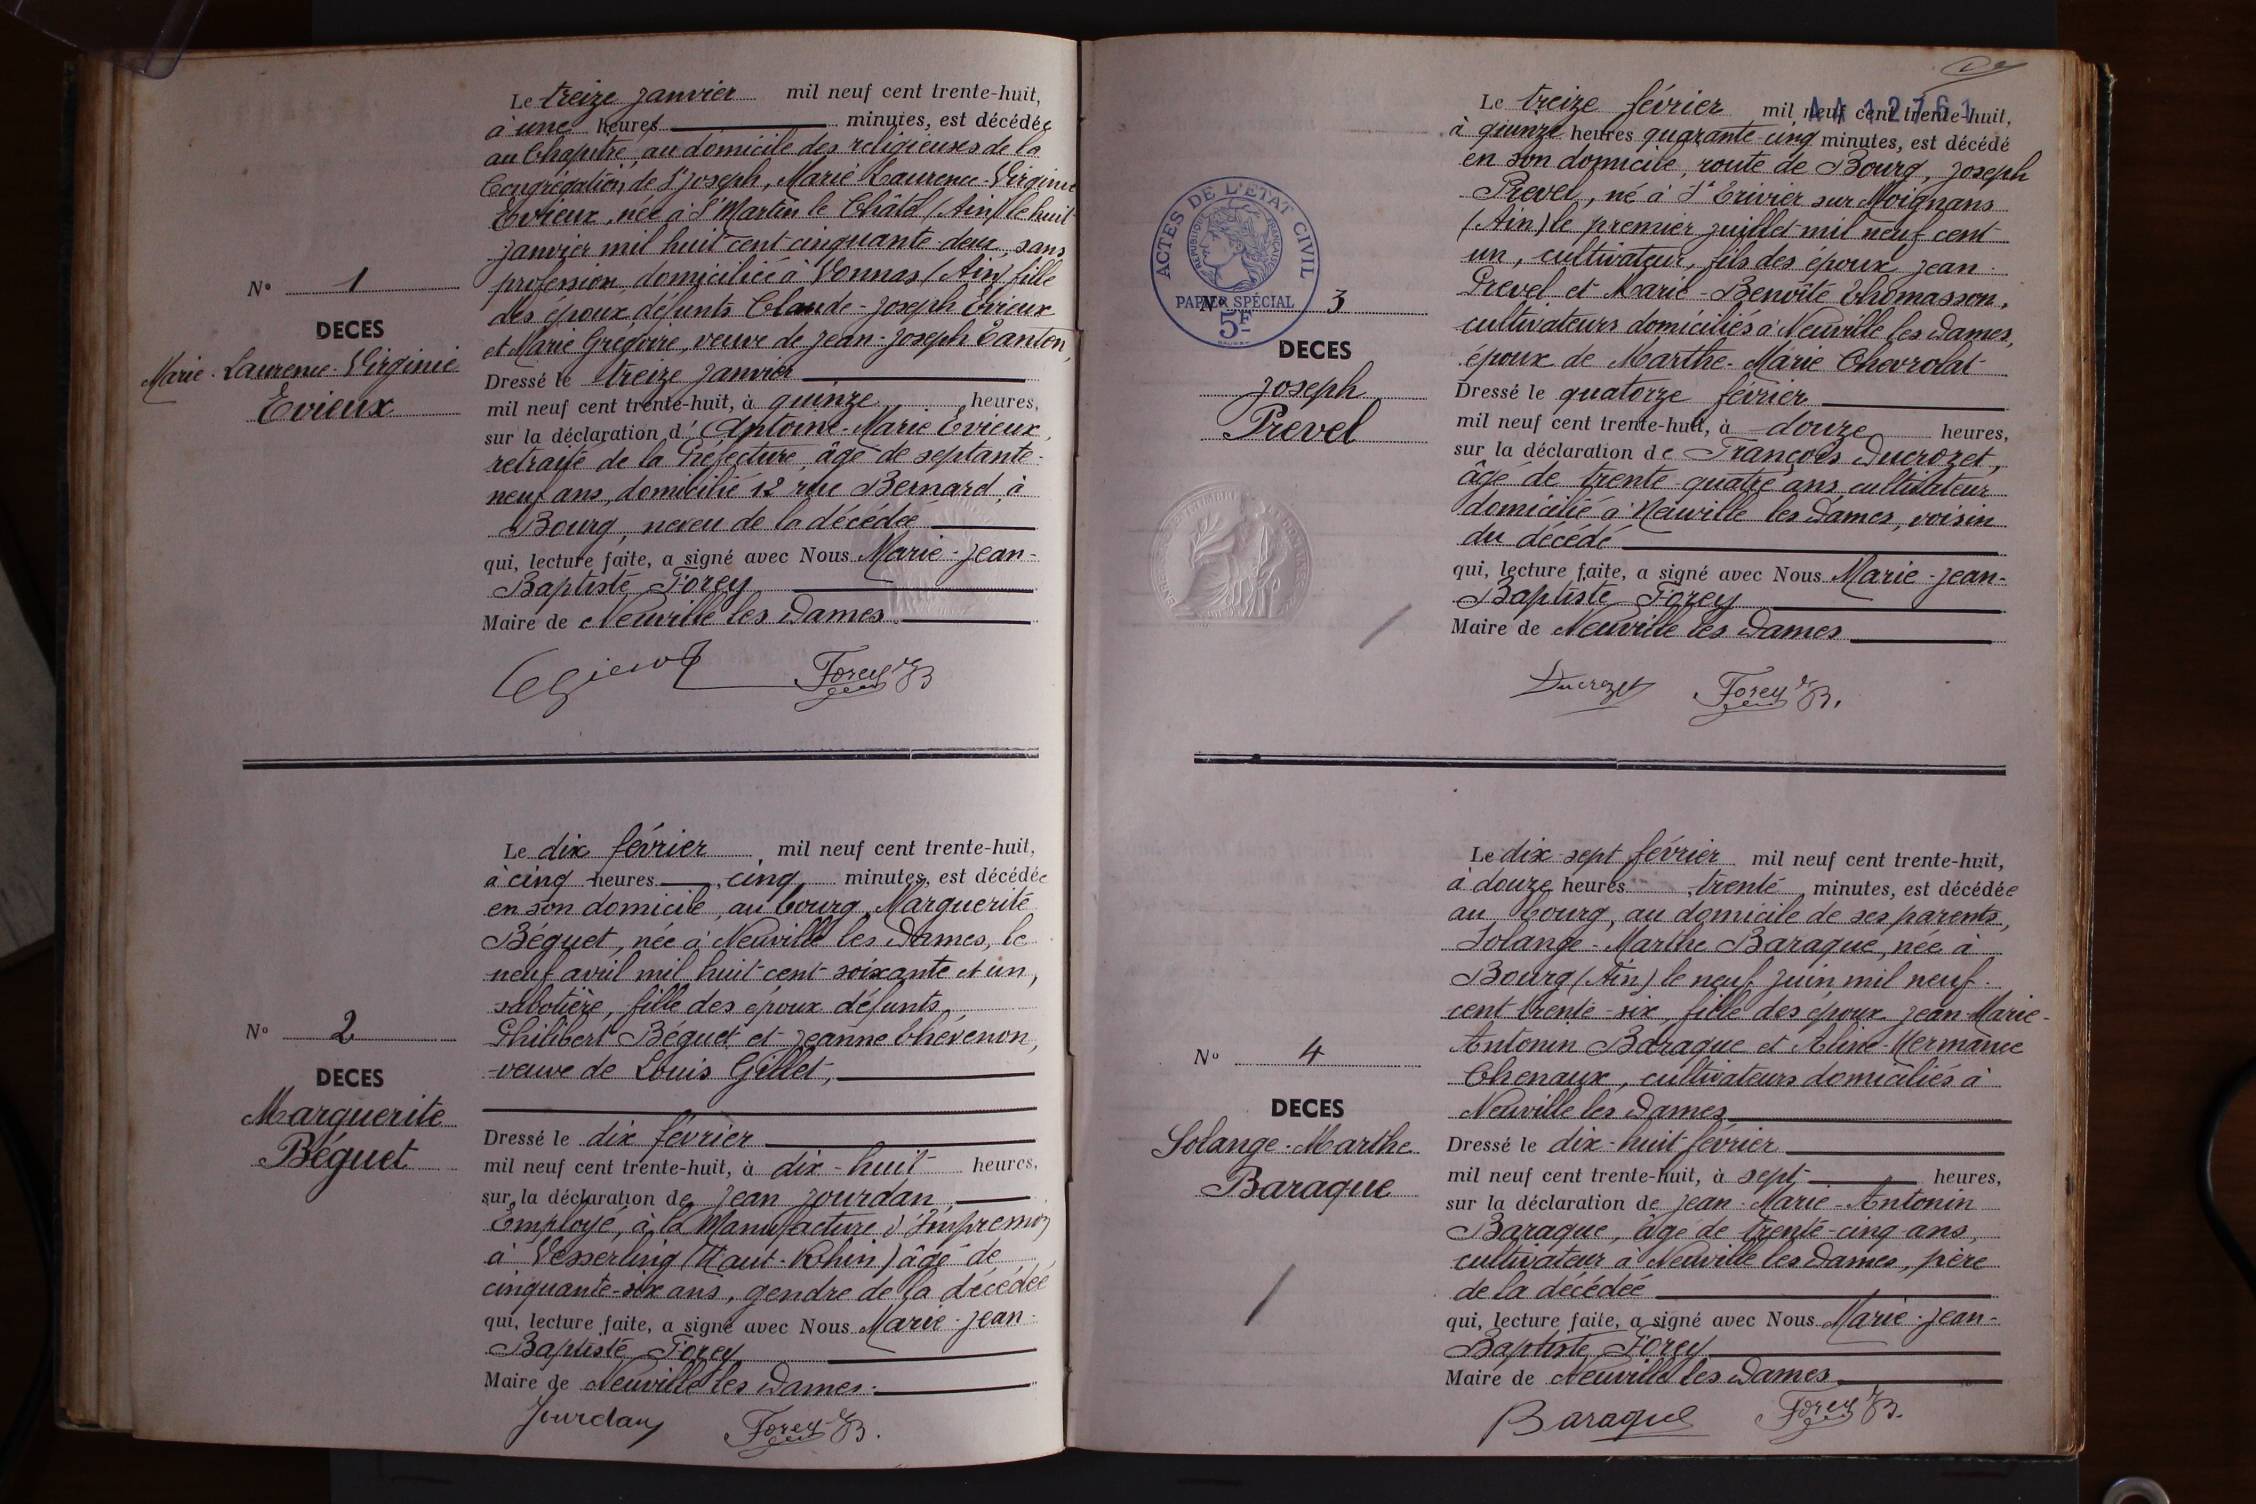 Le treize janvier mil neuf cent trente-huit,
à une heures minutes, est décédée
au Chapitre, au domicile des religieuses de la
Congrégation de St Joseph, Marie Laurence-Virginie
Evieux, née à St Martin le Châtel (Ain) le huit
janvier mil huit cent cinquante-deux, sans
profession, domiciliée à Vonnas (Ain) fille
des époux défunts Claude-Joseph Evieux
et Marie Grégoire, veuve de Jean-Joseph Canton,
Dressé le treize janvier
mil neuf cent trente-huit, à quinze heures,
sur la déclaration d' Antoine-Marie Evieux,
retraité de la Préfecture, âgé de septante-
neuf ans, domicilié 12 rue Bernard, à
Bourg, neveu de la décédée
qui, lecture faite, a signé avec Nous Marie-Jean-
Baptiste Forey
Maire de Neuville les Dames
Forey JB
N° 1
DECES
Marie-Laurence-Virginie
Evieux
Le dix février mil neuf cent trente-huit,
à cinq heures cinq minutes, est décédée
en son domicile, au bourg, Marguerite
Béguet, née à Neuville les Dames, le
neuf avril mil huit cent soixante et un,
sabotière, fille des époux défunts
Philibert Béguet et Jeanne Thévenon,
veuve de Louis Gillet,
Dressé le dix février
mil neuf cent trente-huit, à dix-huit heures,
sur la déclaration de Jean Jourdan,
Employé, à la Manufacture d'Impression
à Wesserling (Haut-Rhin) âgé de
cinquante-six ans, gendre de la décédée
qui, lecture faite, a signé avec Nous Marie-Jean-
Baptiste Forey
Maire de Neuville les Dames.
Jourdan Forey JB.
N° 2
DECES
Marguerite
Béguet
Le treize février mil neuf cent trente-huit,
à quinze heures quarante-cinq minutes, est décédé
en son domicile, route de Bourg, Joseph
Prevel, né à St Trivier sur Moignans
(Ain) le premier juillet mil neuf cent
un, cultivateur, fils des époux Jean
Prevel et Marie-Benoîte Thomasson,
cultivateurs domiciliés à Neuville les Dames,
époux de Marthe-Marie Chevrolat
Dressé le quatorze février
mil neuf cent trente-huit, à douze heures,
sur la déclaration de François Ducrozet,
âgé de trente-quatre ans, cultivateur
domicilié à Neuville les Dames, voisin
du décédé
qui, lecture faite, a signé avec Nous Marie-Jean-
Baptiste Forey
Maire de Neuville les Dames
Ducrozet Forey JB.
ACTES DE L'ETAT CIVIL
REPUBLIQUE FRANÇAISE
PAPIER SPÉCIAL
5F
N° 3
DECES
Joseph
Prevel
Le dix-sept février mil neuf cent trente-huit,
à douze heures trente minutes, est décédée
au bourg, au domicile de ses parents,
Solange-Marthe Baraque, née à
Bourg (Ain) le neuf juin mil neuf
cent trente-six, fille des époux Jean-Marie-
Antonin Baraque et Aline-Hermance
Chenaux, cultivateurs domiciliés à
Neuville les Dames
Dressé le dix-huit février
mil neuf cent trente-huit, à sept heures,
sur la déclaration de Jean-Marie-Antonin
Baraque, âgé de trente-cinq ans,
cultivateur à Neuville les Dames, père
de la décédée
qui, lecture faite, a signé avec Nous Marie-Jean-
Baptiste Forey
Maire de Neuville les Dames
Baraque Forey JB.
N° 4
DECES
Solange-Marthe
Baraque